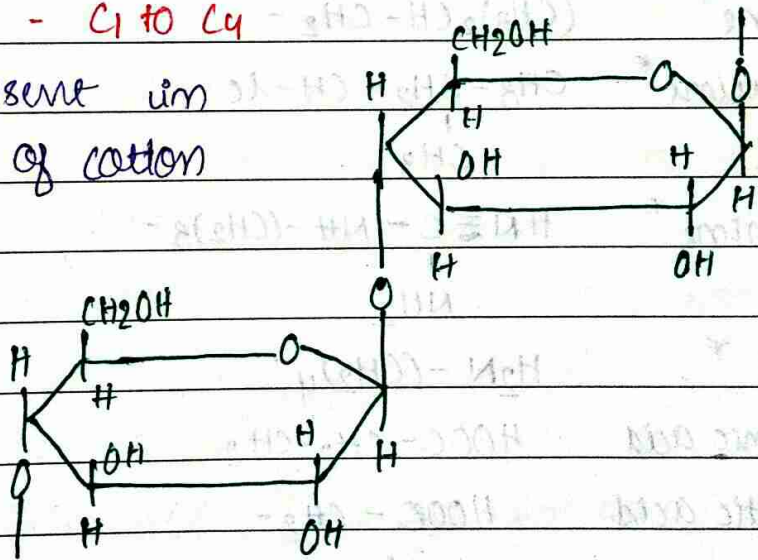 - C1 to C4
sent in
of cotton
CH2OH
H O O
H
OH H
H
H OH
O
CH2OH
H O
H
OH H H
O
H OH